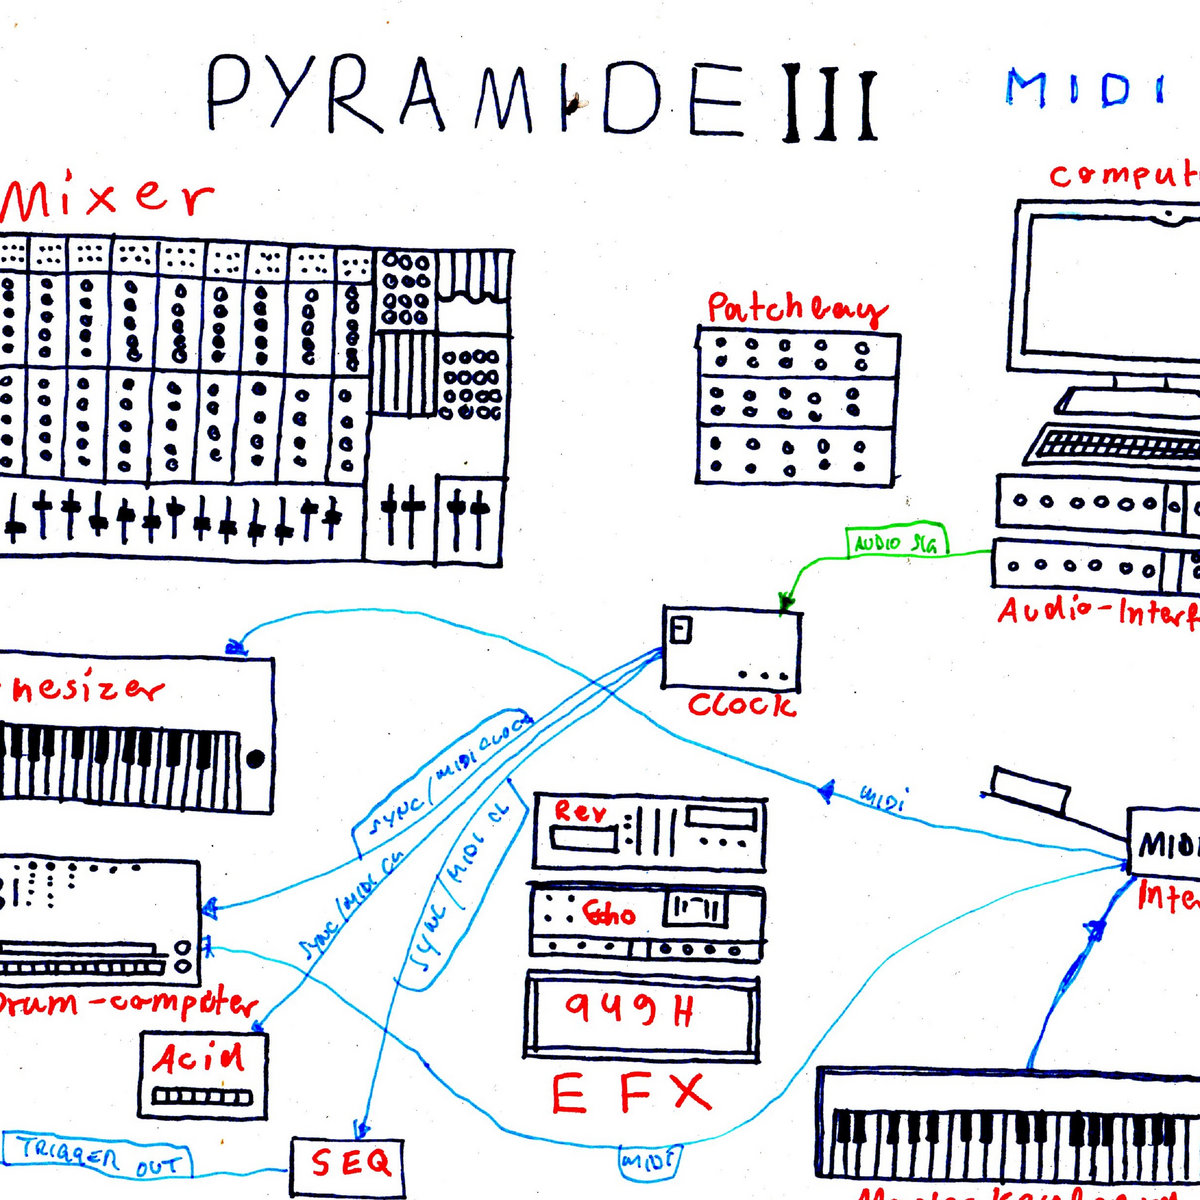 PYRAMIDE III
MIDI
Mixer
comput
Patchbay
AUDIO SIG
Audio-Interf
nesizer
F
CLOCK
SYNC/MIDI CLOCK
MIDI
SYNC/MIDI CLK
SYNC/MIDI CL
Rev
MIDI
Inter
Echo
Drum-computer
949H
Acid
EFX
TRIGGER OUT
SEQ
MIDI